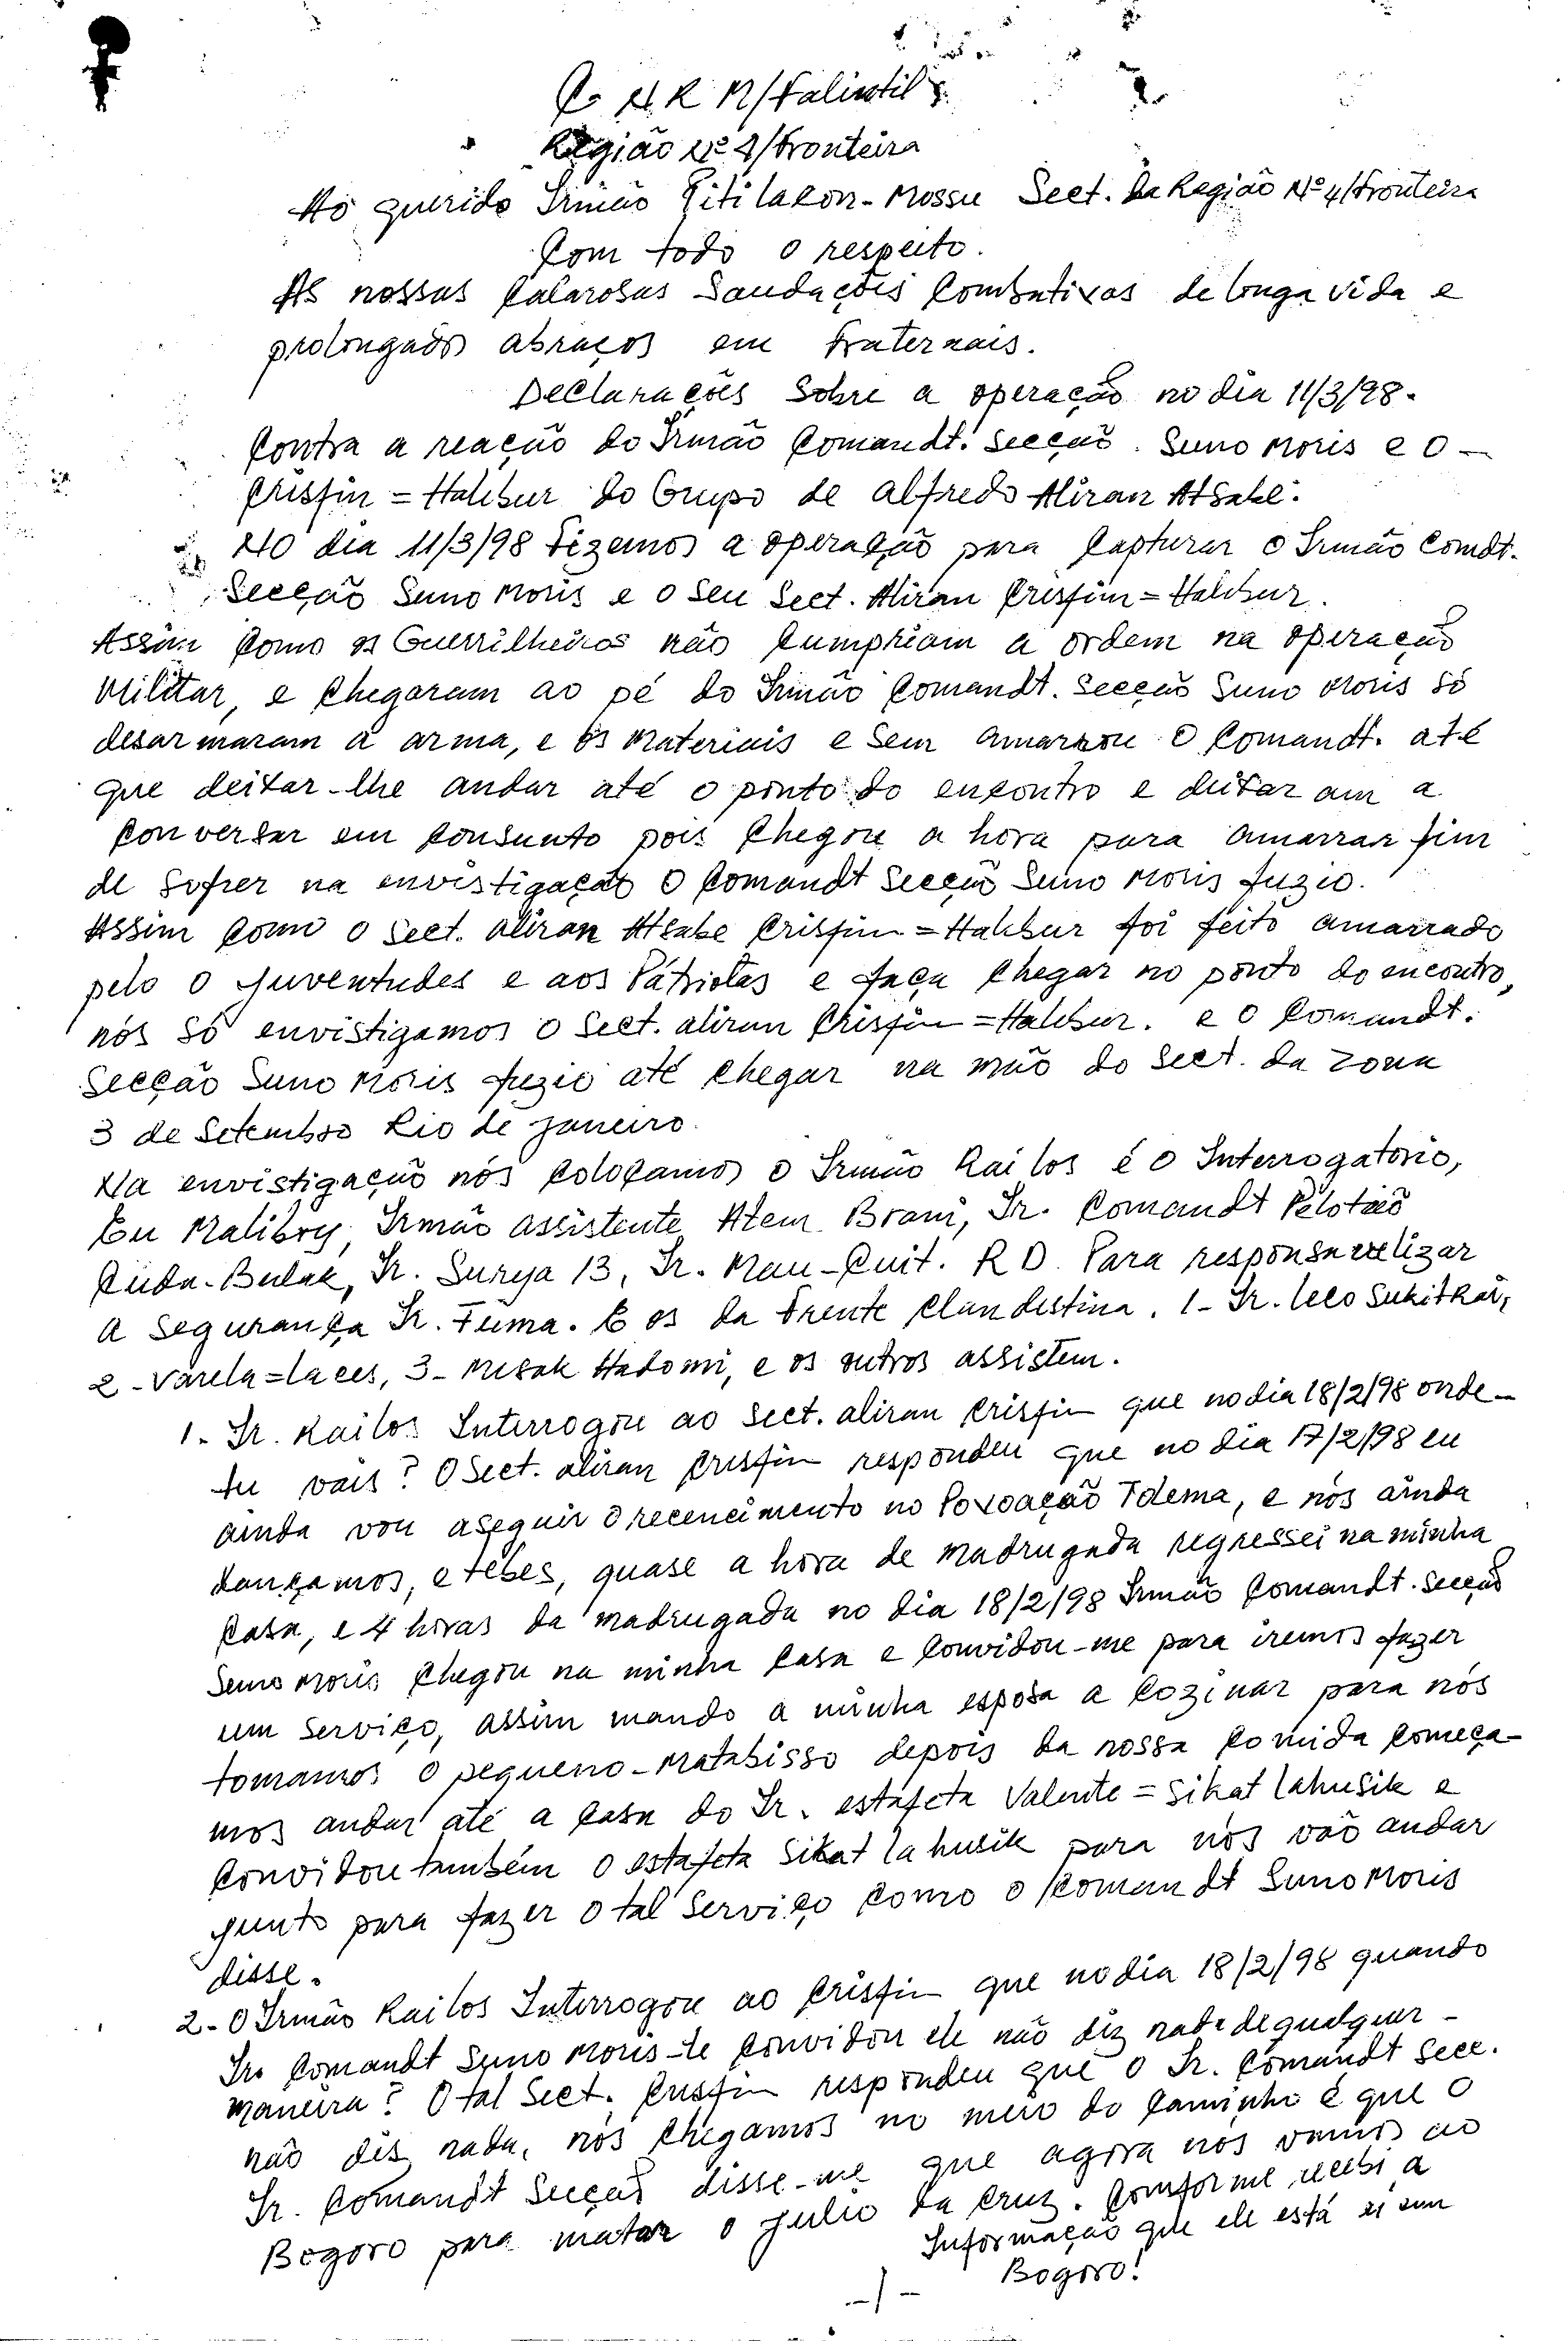 C N R M/Falintil
Região Nº 4/Fronteira
Ao querido Irmão Pitilakon-Mossu Sect. da Região Nº 4/Fronteira
Com todo o respeito.
As nossas calarosas Saudações Combativas de longa vida e
prolongados abraços em Fraternais.
Declarações Sobre a operação no dia 11/3/98.
Contra a reação do Irmão Comandt. Secção. Suno Moris e o -
Crisfin = Halibur do Grupo de alfredo Aliran Atsabe.
NO dia 11/3/98 Fizemos a operação para Capturar o Irmão Comdt.
Secção Suno Moris e o Seu Sect. Aliran Crisfin = Halibur.
Assim Como os Guerrilheiros não Cumpriam a ordem na operação
Militar, e Chegaram ao pé do Irmão Comandt. Secção Suno Moris só
desarmaram a arma, e os Materiais e Sem amarrou o Comandt. até
que deitar-lhe andar até o ponto do encontro e deitaram a
Conversar em Consunto pois Chegou a hora para amarrar fim
de Sofrer na envistigação o Comandt Secção Suno Moris fuzio.
Assim Como o Sect. aliran Atsabe Crisfin = Halibur foi feito amarrado
pelo o Juventudes e aos Pátriotas e faça Chegar no ponto do encontro,
nós Só envistigamos o Sect. aliran Crisfin = Halibur. e o Comandt.
Secção Suno Moris fuzio até Chegar na mão do Sect. da Zona
3 de Setembro Rio de Janeiro.
Na envistigação nós Colocamos o Irmão Railos é o Interrogatorio,
Eu Malibry, Irmão assistente Atem Brani, Ir. Comandt Pelotão
Cuda-Bulak, Ir. Surya 13, Ir. Mau-Cuit. R D. Para responsavelizar
a Segurança Ir. Fuma. E os da Frente Clandestina. 1- Ir. leco Sukitkai,
2-Varela=laces, 3- Misak Hadomi, e os outros assistem.
1- Ir. Railos Interrogou ao Sect. aliran Crisfin que no dia 18/2/98 onde-
tu vais? O Sect. aliran Crisfin respondeu que no dia 17/2/98 eu
ainda vou aseguir o recencimento no Povoação Tdema, e nós ainda
dançamos, e tebes, quase a hora de Madrugada regressei na minha
Casa, e 4 horas da madrugada no dia 18/2/98 Irmão Comandt. Secção
Suno Moris Chegou na minha Casa e Convidou-me para iremos fazer
um Serviço, assim mando a minha esposa a Cozinar para nós
tomamos o pequeno-Matabisso depois da nossa Comida Começa-
mos andar até a Casa do Ir. estafeta Valente = Sikat lahusik e
Convidou também o estafeta Sikat lahusik para nós vão andar
junto para fazer o tal Serviço Como o Comandt Suno Moris
disse.
2- O Irmão Railos Interrogou ao Crisfin que no dia 18/2/98 quando
Ir. Comandt Suno Moris-te Convidou ele não diz nada de qualquer-
maneira? O tal Sect. Crisfin respondeu que o Ir. Comandt Secc.
não dis nada, nós Chegamos no meio do Caminho é que o
Ir. Comandt Secção disse-me que agora nós vamos ao
Bogoro para matar o Julio da Cruz. Comforme recebi a
Informação que ele está ai em
Bogoro!
-/-